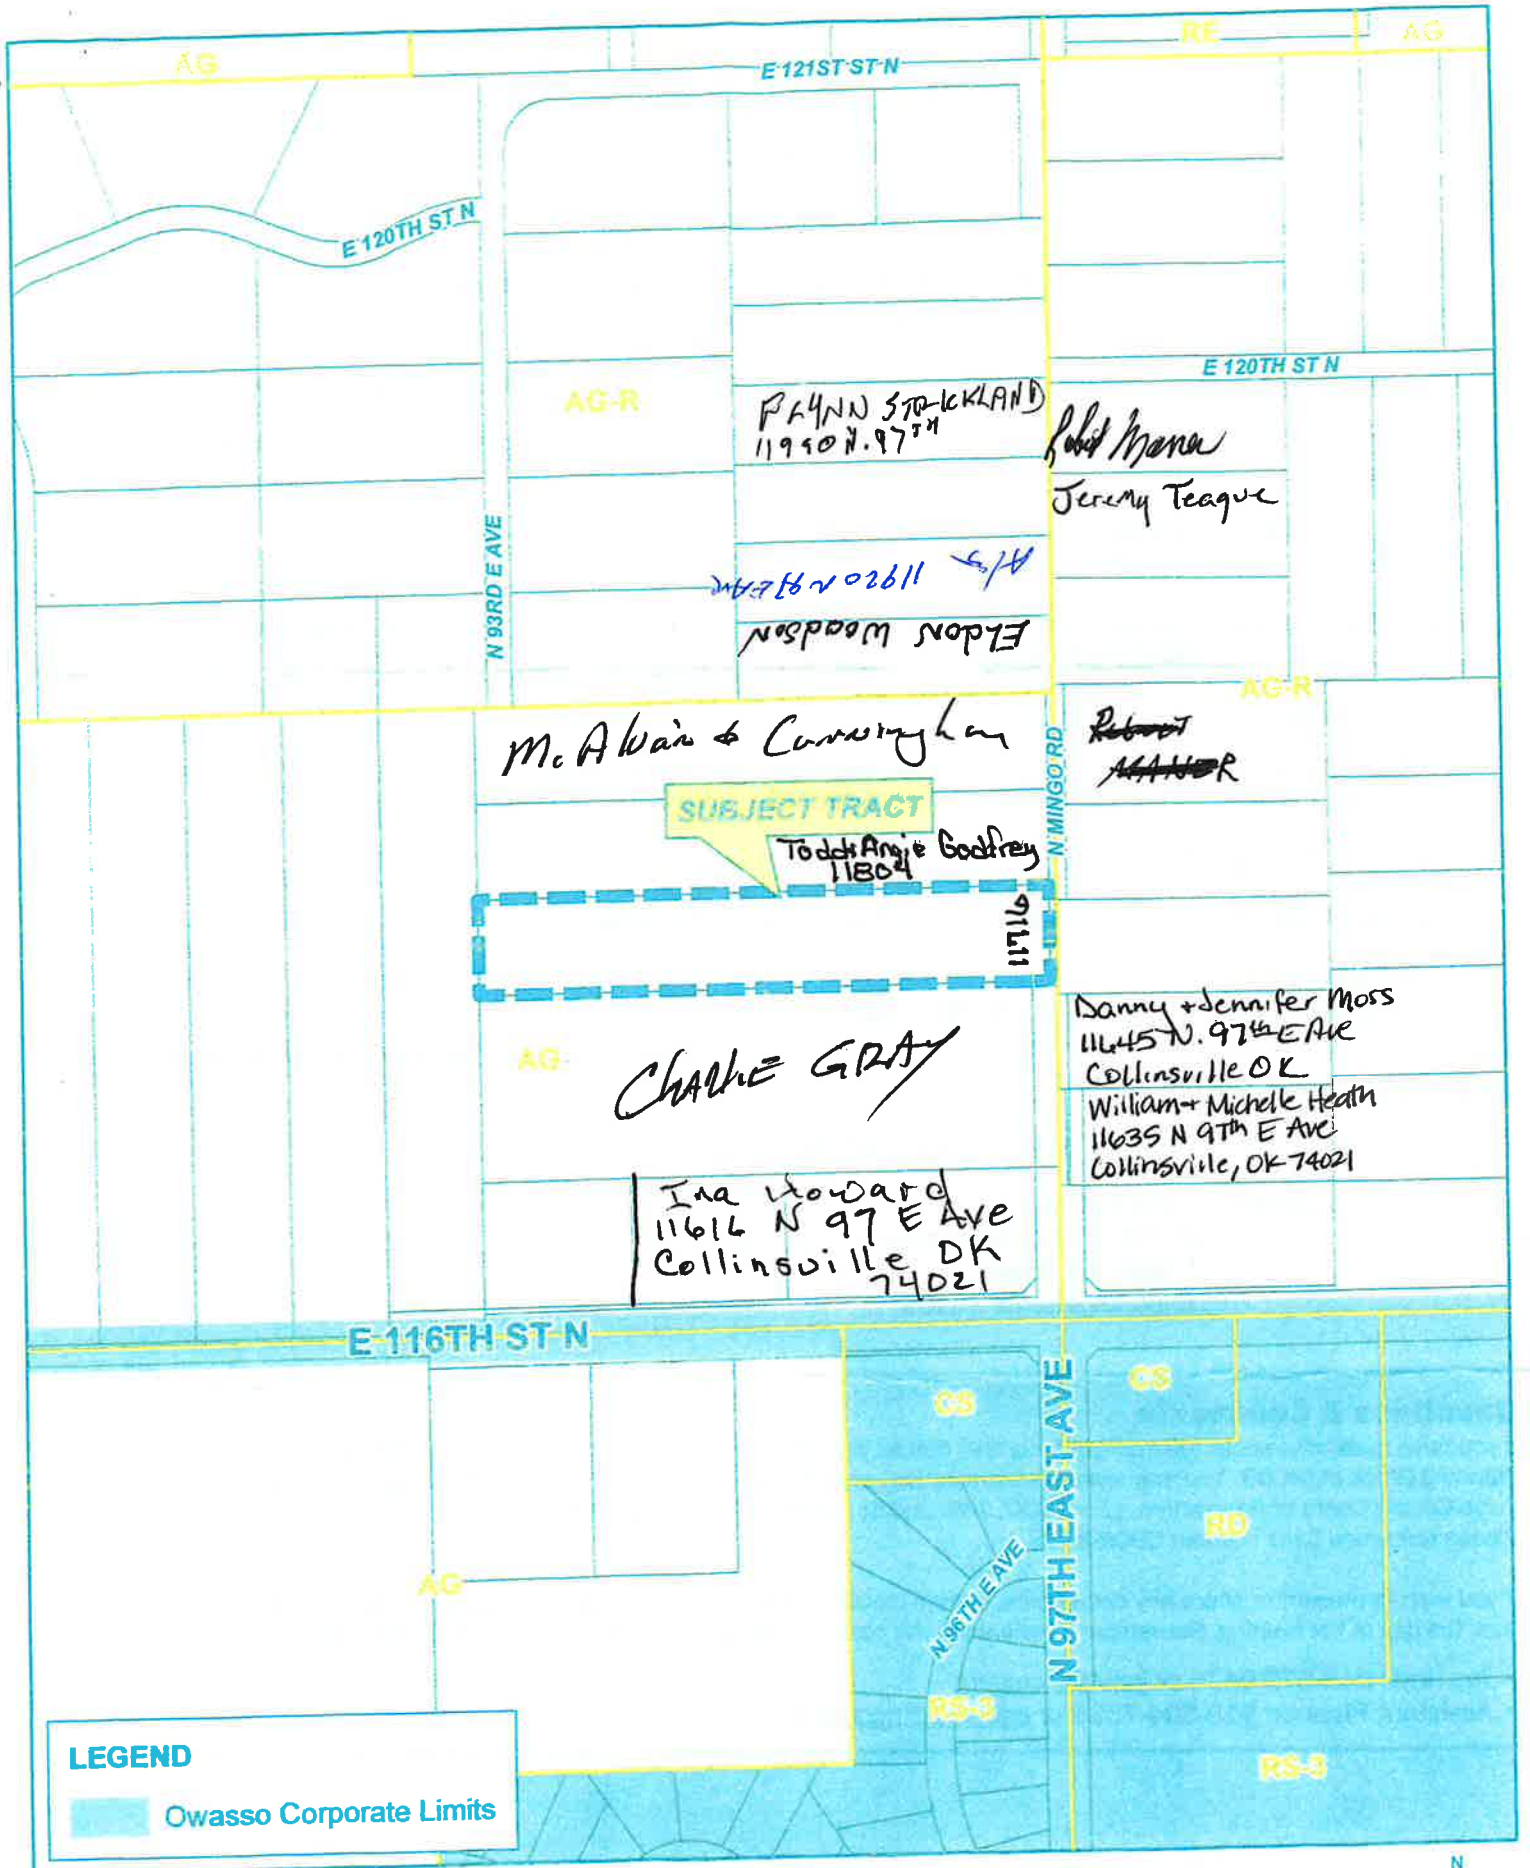 AG
RE
AG
E 121ST ST N
E 120TH ST N
E 120TH ST N
AG-R
FLYNN STRICKLAND
11990 N. 97TH
Jeremy Teague
N 93RD E AVE
11920 N 97 E AVE
Eldon Woodson
AG-R
McAlvain & Cunningham
Robert
MANER
N MINGO RD
SUBJECT TRACT
Todd & Angie Godfrey
11804
11716
AG
Charlie GRAY
Danny + Jennifer Moss
11645 N. 97th E Ave
Collinsville OK
William + Michelle Heath
11635 N 97th E Ave
Collinsville, OK 74021
Ina Howard
11616 N 97 E Ave
Collinsville OK
74021
E 116TH ST N
CS
CS
N 97TH EAST AVE
RD
AG
N 96TH E AVE
RS-3
RS-3
LEGEND
Owasso Corporate Limits
N